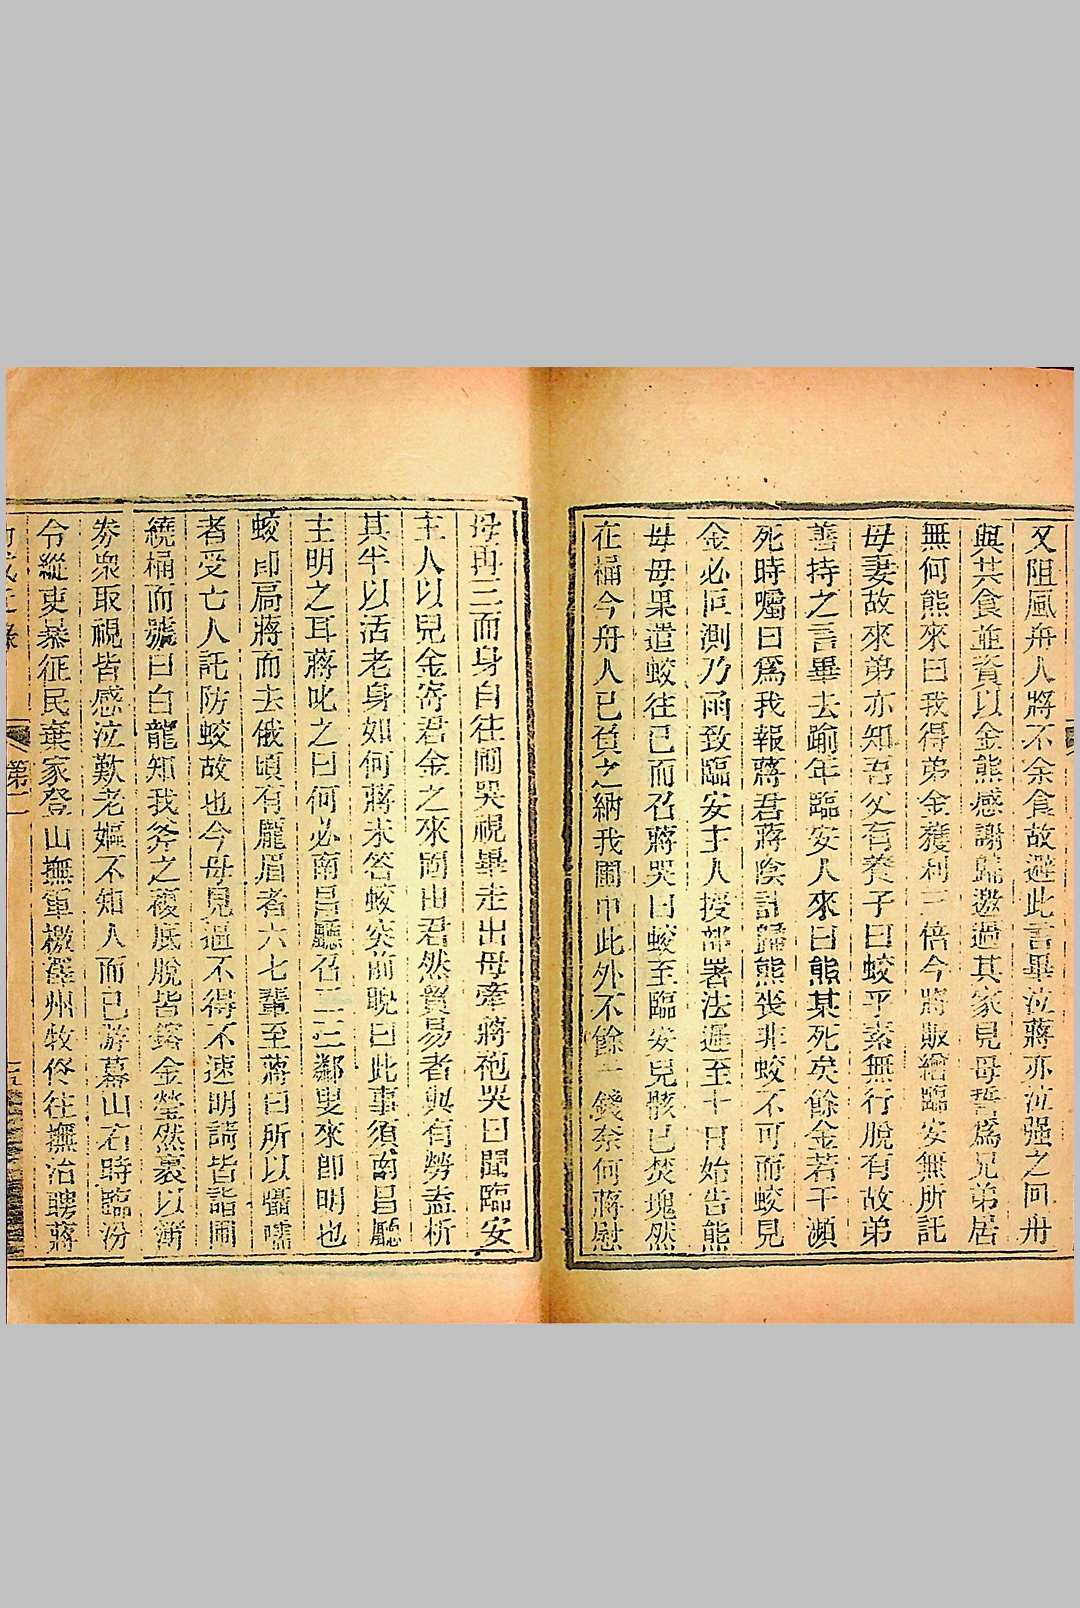 又阻風舟人將不余食故避此言畢泣蔣亦泣強之回舟
與共食並資以金熊感謝歸邀過其家見母誓爲兄弟居
無何熊來曰我得弟金獲利三倍今將販繒臨安無所託
母妻故來弟亦知吾父有養子曰蛟乎素無行脫有故弟
善持之言畢去踰年臨安人來曰熊某死矣餘金若干瀕
死時囑曰爲我報蔣君蔣陰計歸熊喪非蛟不可而蛟見
金必叵測乃函致臨安主人授部署法遲至十日始告熊
母母果遣蛟往已而召蔣哭曰蛟至臨安兒骸已焚塊然
在桶今舟人已負之納我圃中此外不餘一錢奈何蔣慰
母再三而身自往圃哭視畢走出母牽蔣袍哭曰聞臨安
主人以兒金寄君金之來固由君然貿易者與有勞盍析
其半以活老身如何蔣未答蛟突前睨曰此事須南昌廳
主明之耳蔣叱之曰何必南昌廳召二三鄰叟來即明也
蛟即扃蔣而去俄頃有龐眉者六七輩至蔣曰所以囁嚅
者受亡人託防蛟故也今母見逼不得不速明請皆詣圃
繞桶而號曰白龍知我斧之複底脫皆鎔金瑩然裹以簿
券衆取視皆感泣歎老嫗不知人而已游幕山右時臨汾
令縱吏暴征民棄家登山撫軍檄牧佟往撫治聘蔣
第二